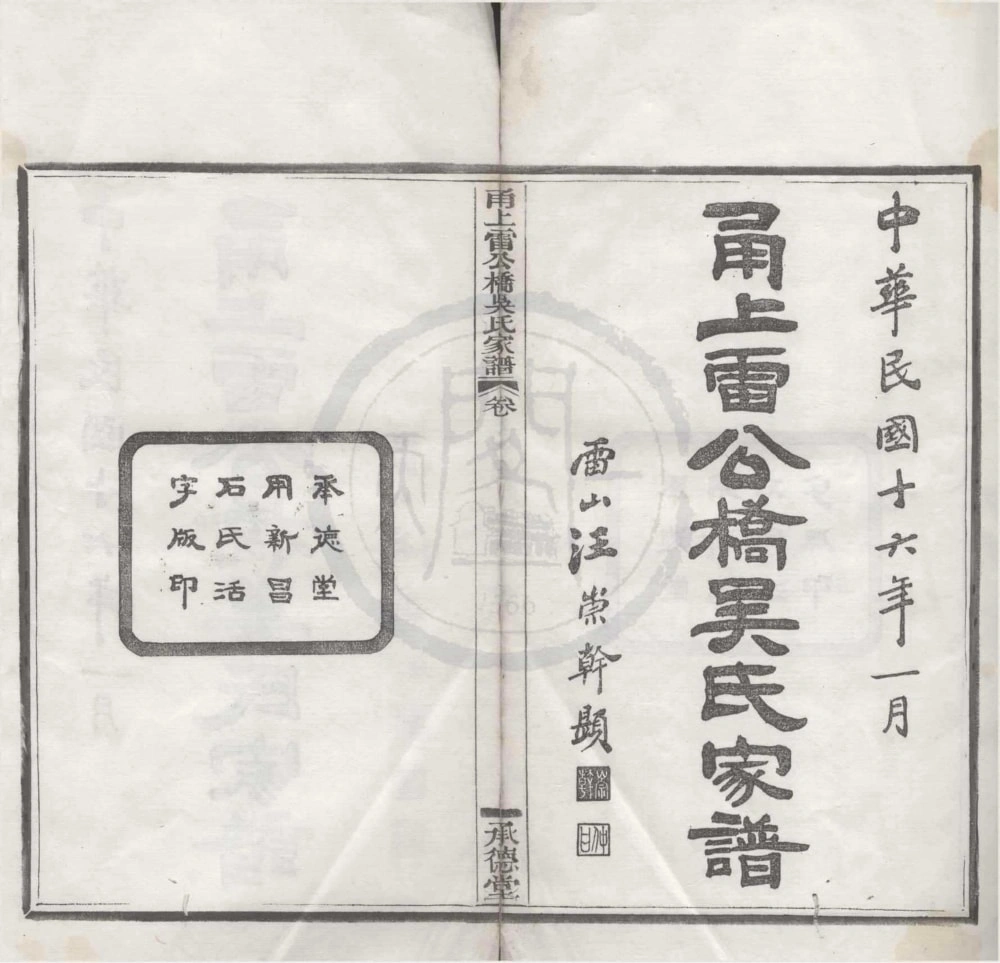 中華民國十六年一月
甬上雷公橋吳氏家譜
雷山汪崇幹題
崇幹
甬上雷公橋吳氏家譜
卷
承德堂
承德堂
用新昌
石氏活
字版印